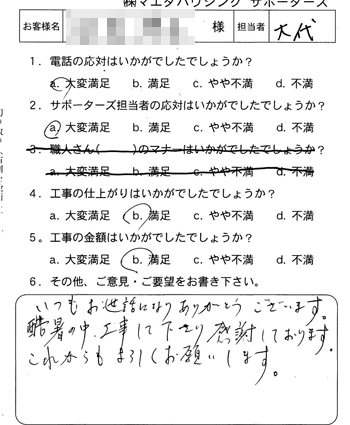 ㈱マエダハウジング サポーターズ
お客様名 様 担当者 大代
1．電話の応対はいかがでしたでしょうか？
a. 大変満足 b. 満足 c. やや不満 d. 不満
2．サポーターズ担当者の応対はいかがでしたでしょうか？
a. 大変満足 b. 満足 c. やや不満 d. 不満
3．職人さん( )のマナーはいかがでしたでしょうか？
a. 大変満足 b. 満足 c. やや不満 d. 不満
4．工事の仕上がりはいかがでしたでしょうか？
a. 大変満足 b. 満足 c. やや不満 d. 不満
5。工事の金額はいかがでしたでしょうか？
a. 大変満足 b. 満足 c. やや不満 d. 不満
6．その他、ご意見・ご要望をお書き下さい。
いつもお世話になりありがとうございます。
酷暑の中、工事して下さり感謝しております。
これからもよろしくお願いします。